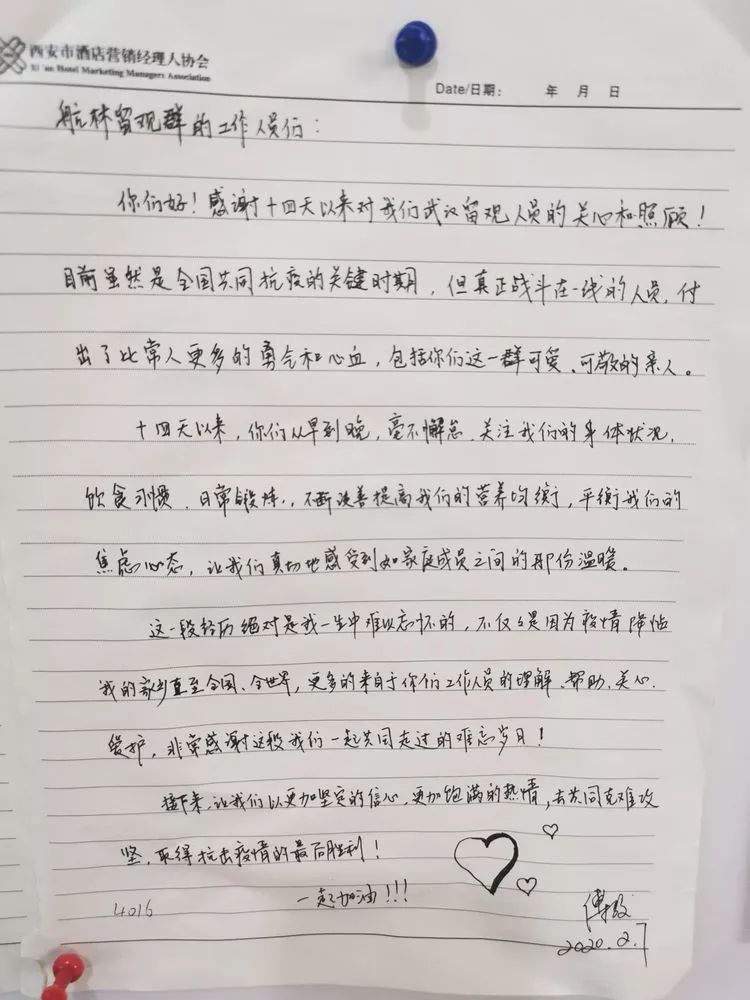 西安市酒店营销经理人协会
Xi'an Hotel Marketing Managers Association
Date/日期： 年 月 日
航林留观群的工作人员们：
你们好！感谢十四天以来对我们武汉留观人员的关心和照顾！
目前虽然是全国共同抗疫的关键时期，但真正战斗在一线的人员，付
出了比常人更多的勇气和心血，包括你们这一群可爱、可敬的亲人。
十四天以来，你们从早到晚，毫不懈怠，关注我们的身体状况，
饮食习惯、日常锻炼，不断改善提高我们的营养均衡，平衡我们的
焦虑心态，让我们真切地感受到如家庭成员之间的那份温暖。
这一段经历绝对是我一生中难以忘怀的，不仅仅是因为疫情降临
我的家乡直至全国、全世界，更多的来自于你们工作人员的理解、帮助、关心、
爱护，非常感谢这段我们一起共同走过的难忘岁月！
接下来，让我们以更加坚定的信心，更加饱满的热情，去共同克难攻
坚，取得抗击疫情的最后胜利！
一起加油！！！
4016
傅
2020.2.7